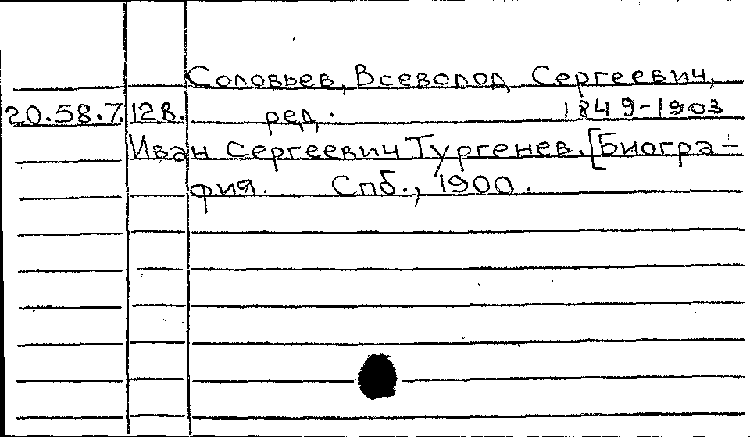 Соловьев, Всеволод Сергеевич,
20.58.7 128. ред. 1849-1903
Иван Сергеевич Тургенев. [Биогра-
фия. Спб., 1900.